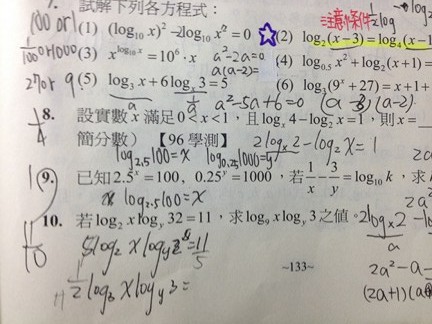 試解下列各方程式：
100 or 1 (1) (log₁₀x)² − 2log₁₀x = 0 ☆(2) log₂(x−3) = log₄(x−1
注意條件
1/100 or 1000 (3) x^(log₁₀x) = 10⁶·x a²−2a=0 (4) log₀.₅x² + log₂(x+1) =
a(a−2)=
27 or 9 (5) log₃x + 6log_x 3 = 5 (6) log₃(9ˣ+27) = x+1+
a a²−5a+6=0 (a−3)(a−2)
8. 設實數 x 滿足 0<x<1，且 log_x 4 − log₂x = 1，則 x=
1/4 簡分數）【96 學測】 2log_x 2 − log₂x = 1
log₂.₅100=x log₀.₂₅1000=y
(9.) 已知 2.5ˣ = 100，0.25ʸ = 1000，若 1/x − 3/y = log₁₀k，求
log₂.₅100 = x
10. 若 log₂x log_y 32 = 11，求 log₉x log_y 3 之值。
11/10 5log₂x log_y 2 = 11/5
1/2 log₃x log_y 3 =
2log_x 2 − lo
a
2a²−a−
(2a+1)(a
~133~